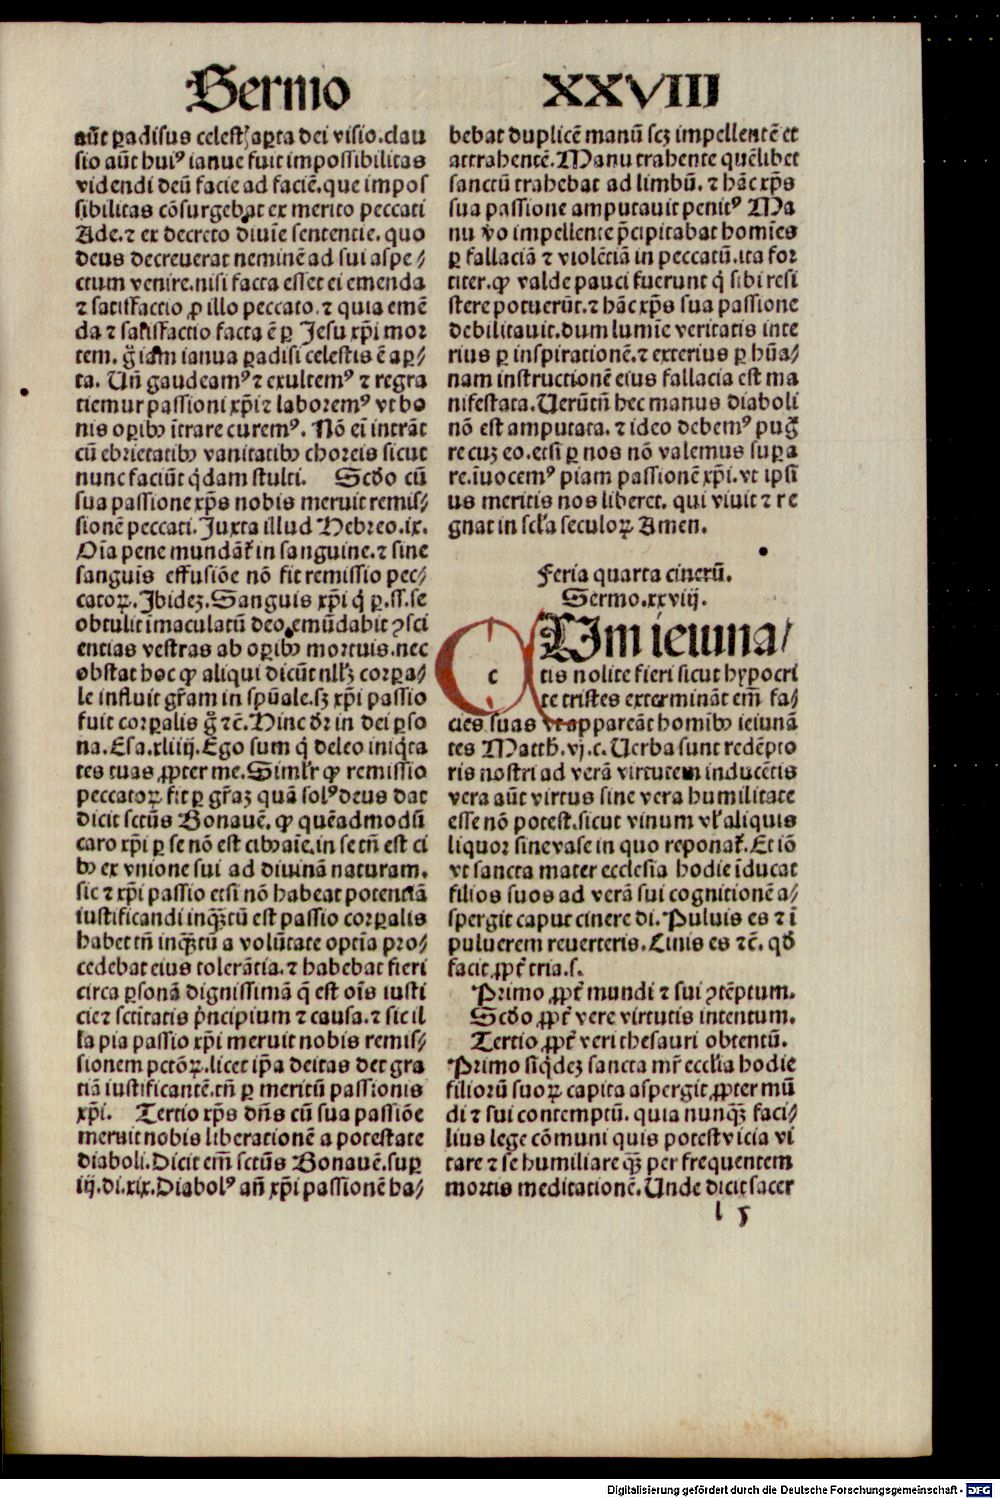 Sermo XXVIII
aūt ꝑadisus celest̄ aꝑta dei visio.clau
sio aūt huiꝰ ianue fuit impossibilitas
videndi deū facie ad faciē.que impos
sibilitas cōsurgebat ex merito peccati
Ade.⁊ ex decreto diuīe sententie.quo
deus decreuerat neminē ad sui aspe/
ctum venire.nisi facta esset ei emenda
⁊ satisfactio ꝓ illo peccato.⁊ quia emē
da ⁊ satisfactio facta ē ꝑ Jesu xp̄i mor
tem.g̊ iam ianua ꝑadisi celestis ē aꝑ/
ta. Un̄ gaudeamꝰ ⁊ exultemꝰ ⁊ regra
tiemur passioni xp̄i ⁊ laboremꝰ vt bo
nis oꝑibꝫ ītrare curemꝰ. Nō eī intrāt
cū ebrietatibꝫ vanitatibꝫ choreis sicut
nunc faciūt q̇dam stulti. Scd̄o cū
sua passione xp̄s nobis meruit remis/
sionē peccati.Juxta illud Hebreo.ix.
Oīa pene mundāt̄ in sanguine.⁊ sine
sanguis effusiōe nō fit remissio pec/
catoꝝ.Ibidez.Sanguis xp̄i q̇ ꝑ.ss.se
obtulit īmaculatū deo.emūdabit ꝯsci
entias vestras ab oꝑibꝫ mortuis.nec
obstat hoc ꝙ aliqui dicūt nllꝫ corꝑa/
le influit gr̄am in spūale.sꝫ xp̄i passio
fuit corꝑalis g̊ ⁊c̄.Hinc dr̄ in dei ꝑso
na.Esa.xliiij.Ego sum q̇ deleo iniq̇ta
tes tuas ꝓpter me.Simlr̄ ꝙ remissio
peccatoꝝ fit ꝑ gr̄az quā solꝰ deus dat
dicit sctūs Bonauē.ꝙ quēadmodū
caro xp̄i ꝑ se nō est cibꝫ aīe.in se tn̄ est ci
bꝫ ex vnione sui ad diuinā naturam.
sic ⁊ xp̄i passio etsi nō habeat potentiā
iustificandi inqꝫtū est passio corꝑalis
habet tn̄ inqꝫtū a volūtate optīa pro/
cedebat eius tolerātia.⁊ habebat fieri
circa ꝑsonā dignissimā q̄ est oīs iusti
cie ⁊ sctītatis pͥncipium ⁊ causa.⁊ sic il
la pia passio xp̄i meruit nobis remis/
sionem pctōꝝ.licet ip̄a deitas det gra
tiā iustificantē.tn̄ ꝑ meritū passionis
xp̄i. Tertio xp̄s dn̄s cū sua passiōe
meruit nobis liberationē a potestate
diaboli.Dicit em̄ sctūs Bonauē.suꝑ
iij.di.xix.Diabolꝰ an̄ xp̄i passionē ha/
bebat duplicē manū scꝫ impellentē et
attrahentē.Manu trahente quēlibet
sanctū trahebat ad limbū.⁊ hāc xp̄s
sua passione amputauit penitꝰ Ma
nu v̊o impellente p̄cipitabat homīes
ꝑ fallaciā ⁊ violētiā in peccatū.ita for
titer.ꝙ valde pauci fuerunt q̇ sibi resi
stere potuerūt.⁊ hāc xp̄s sua passione
debilitauit.dum lumīe veritatis inte
rius ꝑ inspirationē.⁊ exterius ꝑ hūa/
nam instructionē eius fallacia est ma
nifestata.Uerūtn̄ hec manus diaboli
nō est amputata.⁊ ideo debemꝰ pug̃
re cuz eo.etsi ꝑ nos nō valemus suꝑa
re.īuocemꝰ piam passionē xp̄i.vt ipsi
us meritis nos liberet. qui viuit ⁊ re
gnat in scl̄a seculoꝝ Amen.
Feria quarta cinerū.
Sermo.xxviij.
c Um ieiuna/
tis nolite fieri sicut hypocri
te tristes extermināt em̄ fa/
cies suas vt appareāt homībꝫ ieiunā
tes Matth̄.vj.c.Uerba sunt redēpto
ris nostri ad verā virtutem inducētis
vera aūt virtus sine vera humilitate
esse nō potest.sicut vinum vl̓ aliquis
liquor sine vase in quo reponat̄.Et iō
vt sancta mater ecclesia hodie īducat
filios suos ad verā sui cognitionē a/
spergit caput cinere di.Puluis es ⁊ ī
puluerem reuerteris.Cinis es ⁊c̄. qd̄
facit ꝓpt̄ tria.s.
Primo ꝓpt̄ mundi ⁊ sui ꝯtēptum.
Scd̄o ꝓpt̄ vere virtutis intentum.
Tertio ꝓpt̄ veri thesauri obtentū.
Primo siq̇dez sancta mr̄ eccl̄ia hodie
filiorū suoꝝ capita aspergit ꝓpter mū
di ⁊ sui contemptū. quia nunqꝫ faci/
lius lege cōmuni quis potest vicia vi
tare ⁊ se humiliare qꝫ per frequentem
mortis meditationē.Unde dicit sacer
l 5
Digitalisierung gefördert durch die Deutsche Forschungsgemeinschaft - DFG